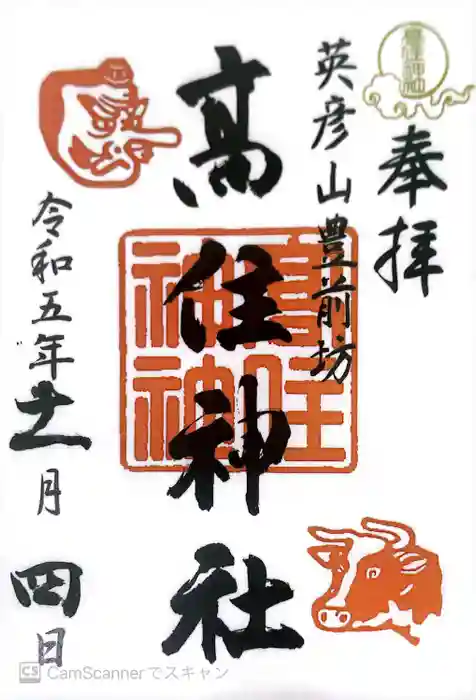 奉拝
英彦山豊前坊
高住神社
令和五年十一月四日
CS CamScannerでスキャン